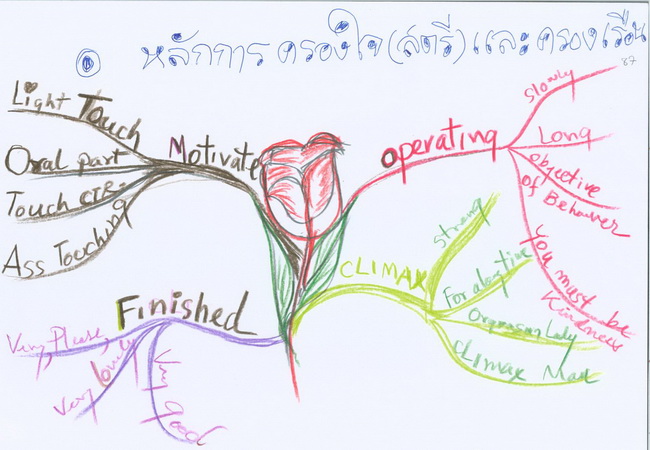 หลักการ ครองใจ(สตรี) และ ครองเรือน
'67
Motivate
Light Touch
Oral part
Touch
Ass Touching
Operating
Slowly
Long
objective
of Behaviver
You must be
Kindness
CLIMAX
Strong
For a long time
Orgmasam Lady
CLIMAX Man
Finished
Very Please
Very lovely
Very Good